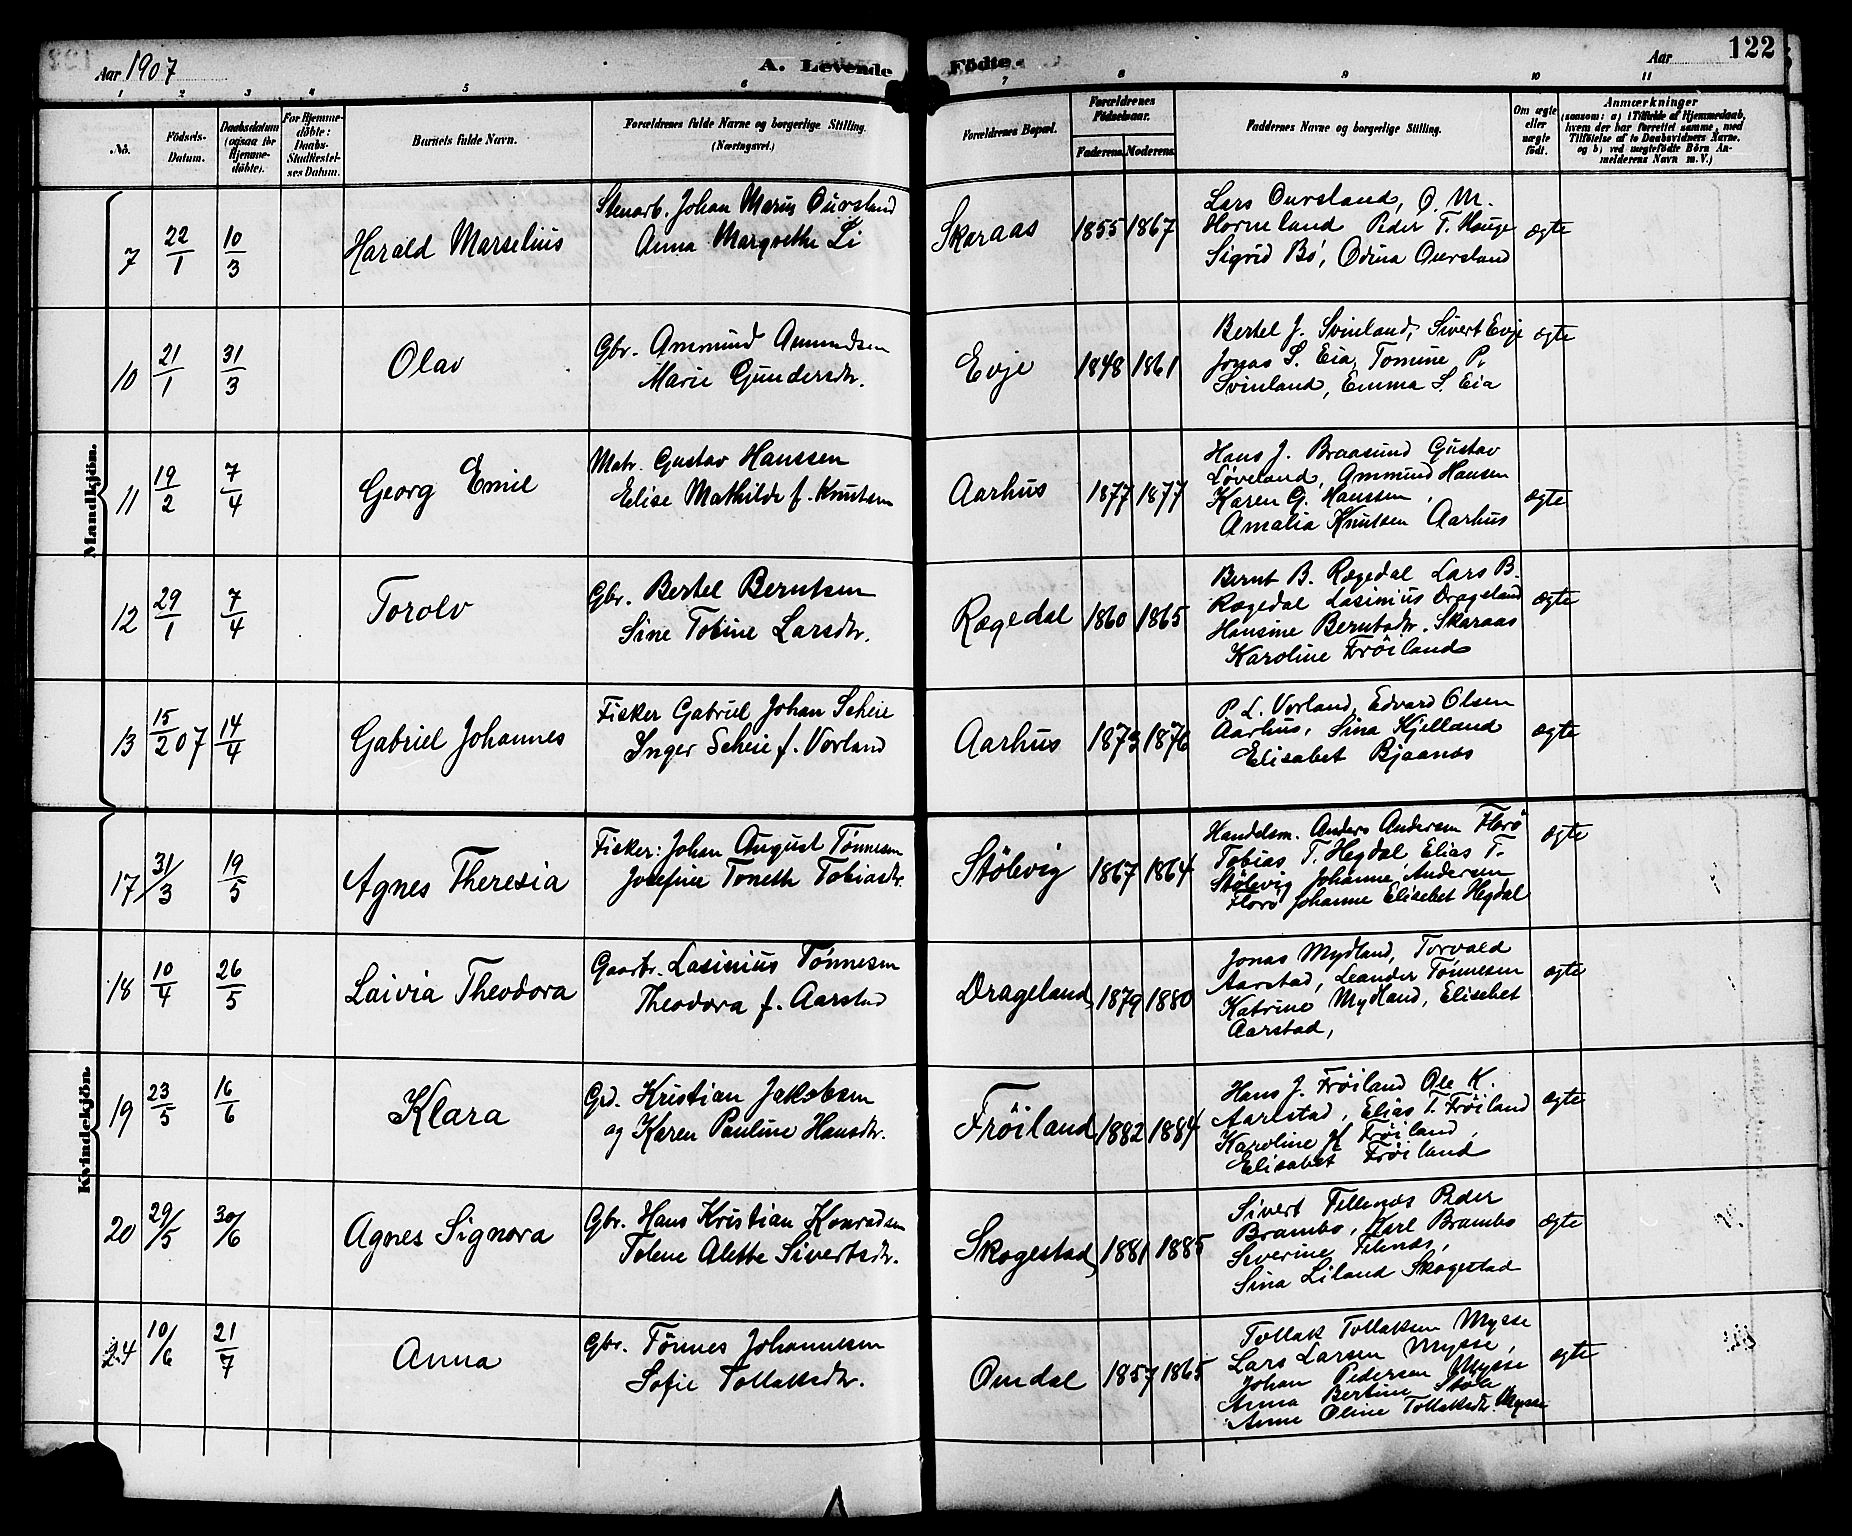 Aar 1907
A. Levende
Födte.
Aar
122
1 2 3 4 5 6 7 8 9 10 11
No.
Födsels-
Datum.
Daabsdatum
(ogsaa for
Hjemme-
döbte).
For Hjemme-
döbte:
Daabs-
Stadfæstel-
ses Datum.
Barnets fulde Navn.
Forældrenes fulde Navne og borgerlige Stilling.
(Næringsvei.)
Forældrenes Bopæl.
Forældrenes
Födselsaar.
Faderens. Moderens.
Faddernes Navne og borgerlige Stilling.
Om ægte
eller
uægte
födt.
Anmærkninger
(saasom: a) i Tilfælde af Hjemmedaab,
hvem der har forrettet samme, med
Tilföielse af to Daabsvidners Navne.
og b) ved uægtefödte Börn An-
melderens Navn m. V.)
Mandkjön.
7 22/1 10/3
Harald Marselius
Stenarb. Johan Marius Oursland
Anna Margrethe Li
Skaraas 1855 1867
Lars Oursland, O. M.
Horneland Peder T. Hauge
Sigrid Bö, Odina Oursland
ægte
10 21/1 31/3
Olav
Gbr. Ammund Amundsen
Marie Gundersdtr.
Evje 1848 1861
Bertel J. Svinland, Sivert Evje
Jonas S. Eia, Tomine P.
Svinland, Emma S. Eia
ægte
11 19/2 7/4
Georg Emil
Matr. Gustav Hanssen
Elise Mathilde f. Knutsen
Aarhus 1877 1877
Hans J. Braasund Gustav
Løveland, Ammund Hansen
Karen G. Hanssen,
Amalia Knutsen Aarhus
ægte
12 29/1 7/4
Torolv
Gbr. Bertel Berntsen
Sine Tobine Larsdtr.
Rægedal 1860 1865
Bernt B. Rægedal Lars B.
Rægedal Lasinius Drageland
Hansine Berntsdtr. Skaraas
Karoline Fröiland
ægte
13 15/2 07 14/4
Gabriel Johannes
Fisker Gabriel Johan Scheie
Inger Scheie f. Vorland
Aarhus 1873 1876
P. L. Vorland, Edvard Olsen
Aarhus, Sina Kjelland
Elisabet Bjaanes
ægte
Kvindekjön.
17 31/3 19/5
Agnes Theresia
Fisker: Johan August Tønnesen
Josefine Toneth Tobiasdtr.
Stölevig 1867 1864
Handelsm. Anders Andersen Florö
Tobias T. Hegdal, Elias T.
Stölevig Johanne Andersen
Florö Johanne Elisebet Hegdal
ægte
18 10/4 26/5
Laivia Theodora
Gaarbr. Lasinius Tönnesen
Theodora f. Aarstad
Drageland 1879 1880
Jonas Mydland, Torvald
Aarstad, Leander Tønnesen
Katrine Mydland, Elisebet
Aarstad,
ægte
19 23/5 16/6
Klara
Gd. Kristian Jakobsen
og Karen Pauline Hansdtr.
Fröiland 1882 1884
Hans J. Fröiland Ole K.
Aarlstad, Elias T. Fröiland
Karoline H Fröiland,
Elisabet Fröiland
ægte
20 29/5 30/6
Agnes Signora
Gbr. Hans Kristian Konradsen
Tolene Alette Sivertsdtr.
Skogestad 1881 1885
Sivert Fillenæs Peder
Brambo, Karl Brambo
Severine Filnæs,
Sina Liland Skogestad
ægte
24 10/6 21/7
Anna
Gbr. Tönnes Johannesen
Sofie Tollaksdtr.
Omdal 1857 1865
Tollak Tollaksen Mysse
Lars Larsen Mysse,
Johan Pedersen Mysse
Anna Bertine Stöle
Anne Oline Tollaksdtr. Mysse
ægte